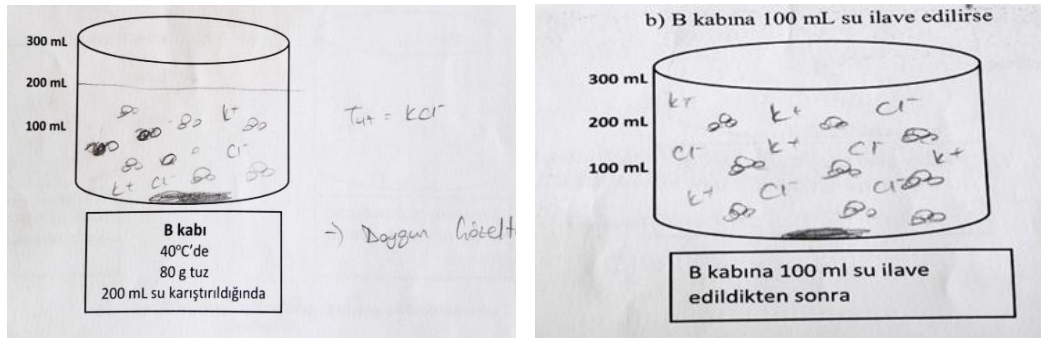 300 mL
200 mL
100 mL
K+
Cl-
K+ Cl-
Tuz = KCl
→ Doygun Çözelti
B kabı
40°C'de
80 g tuz
200 mL su karıştırıldığında
b) B kabına 100 mL su ilave edilirse
300 mL
200 mL
100 mL
K+ K+ Cl-
Cl- K+ Cl- K+
K+ Cl- Cl-
B kabına 100 ml su ilave
edildikten sonra